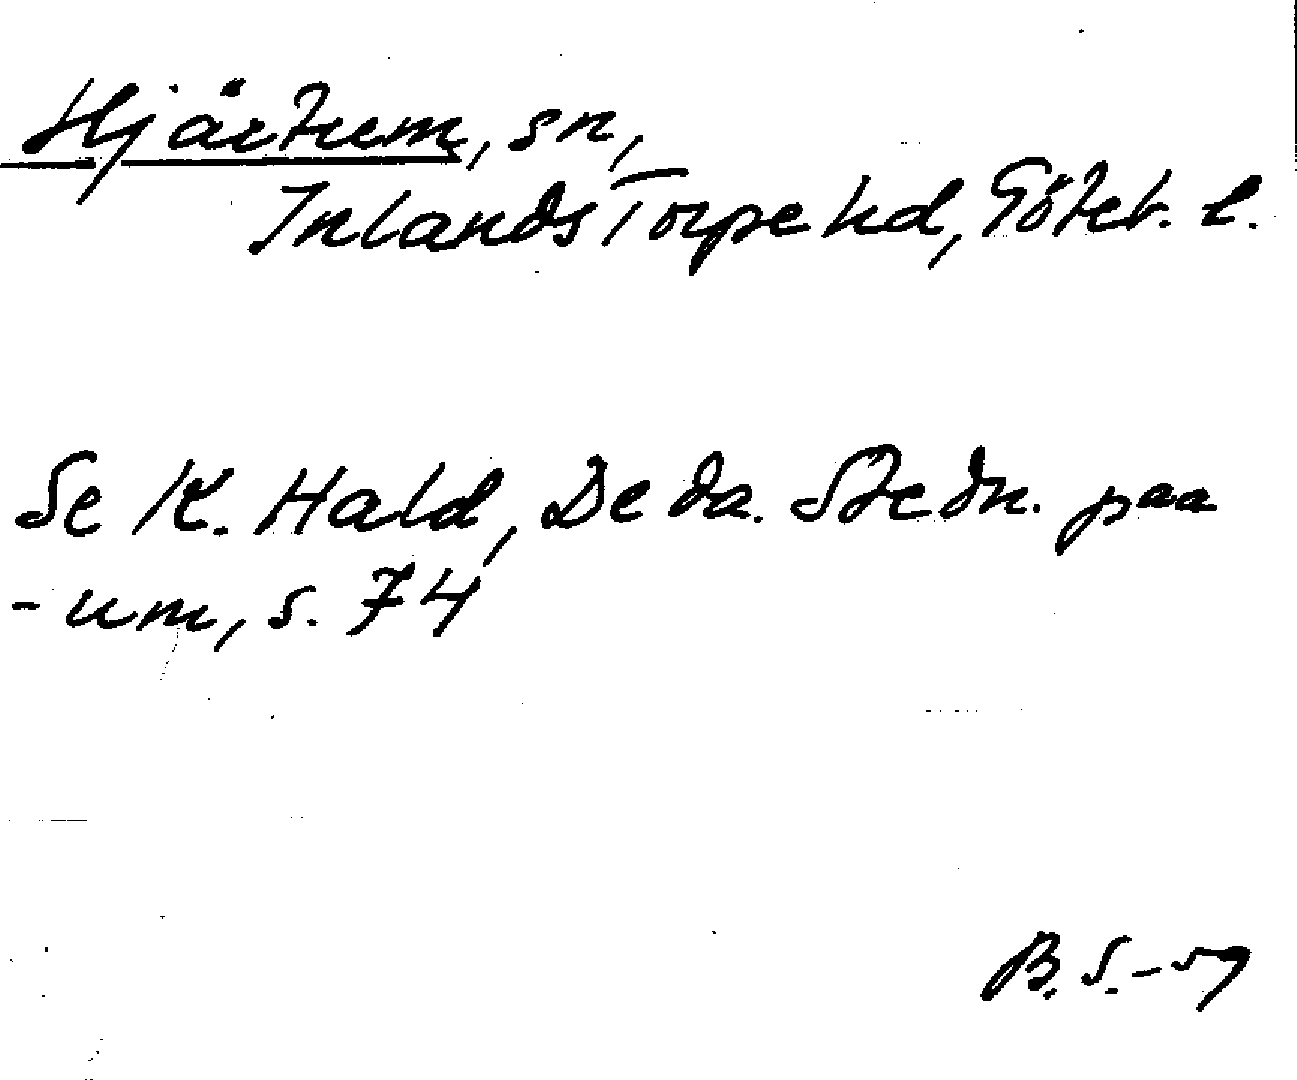 Hjärtum, sn,
Inlands Torpe hd, Göteb. l.
Se K. Hald, De da. Stedn. paa
-um, s. 74
B. S. -59